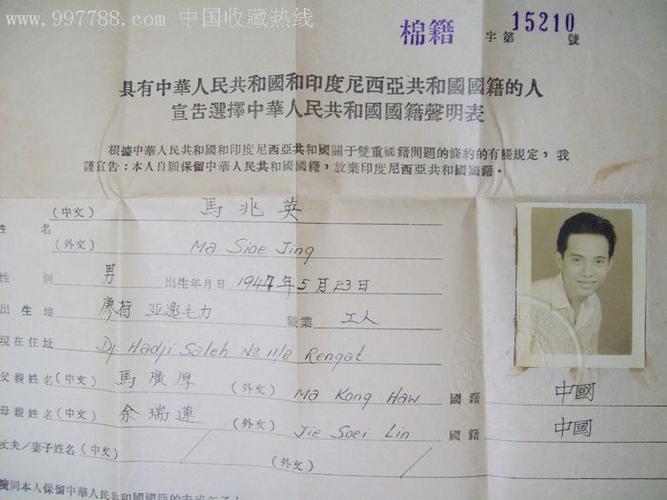 www.997788.com 中国收藏热线
棉籍 字第 15210 號
具有中華人民共和國和印度尼西亞共和國國籍的人
宣告選擇中華人民共和國國籍聲明表
根據中華人民共和國和印度尼西亞共和國關于雙重國籍問題的條約的有關規定，我
謹宣告：本人自願保留中華人民共和國國籍，放棄印度尼西亞共和國國籍。
(中文) 馬兆英
姓名
(外文) Ma Sioe Jing
性別 男 出生年月日 1947年5月23日
出生地 廖省 亚逸毛力 職業 工人
現在住址 Dj: Hadji Saleh No 11/B Rengat
父親姓名(中文) 馬廣厚 (外文) Ma Kong Haw 國籍 中國
母親姓名(中文) 余瑞蓮 (外文) Jie Soei Lin 國籍 中國
丈夫/妻子姓名(中文) / (外文) /
同本人保留中華人民共和國國籍的未成年子